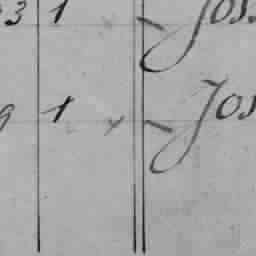 3 1 Jos
9 1 Jos